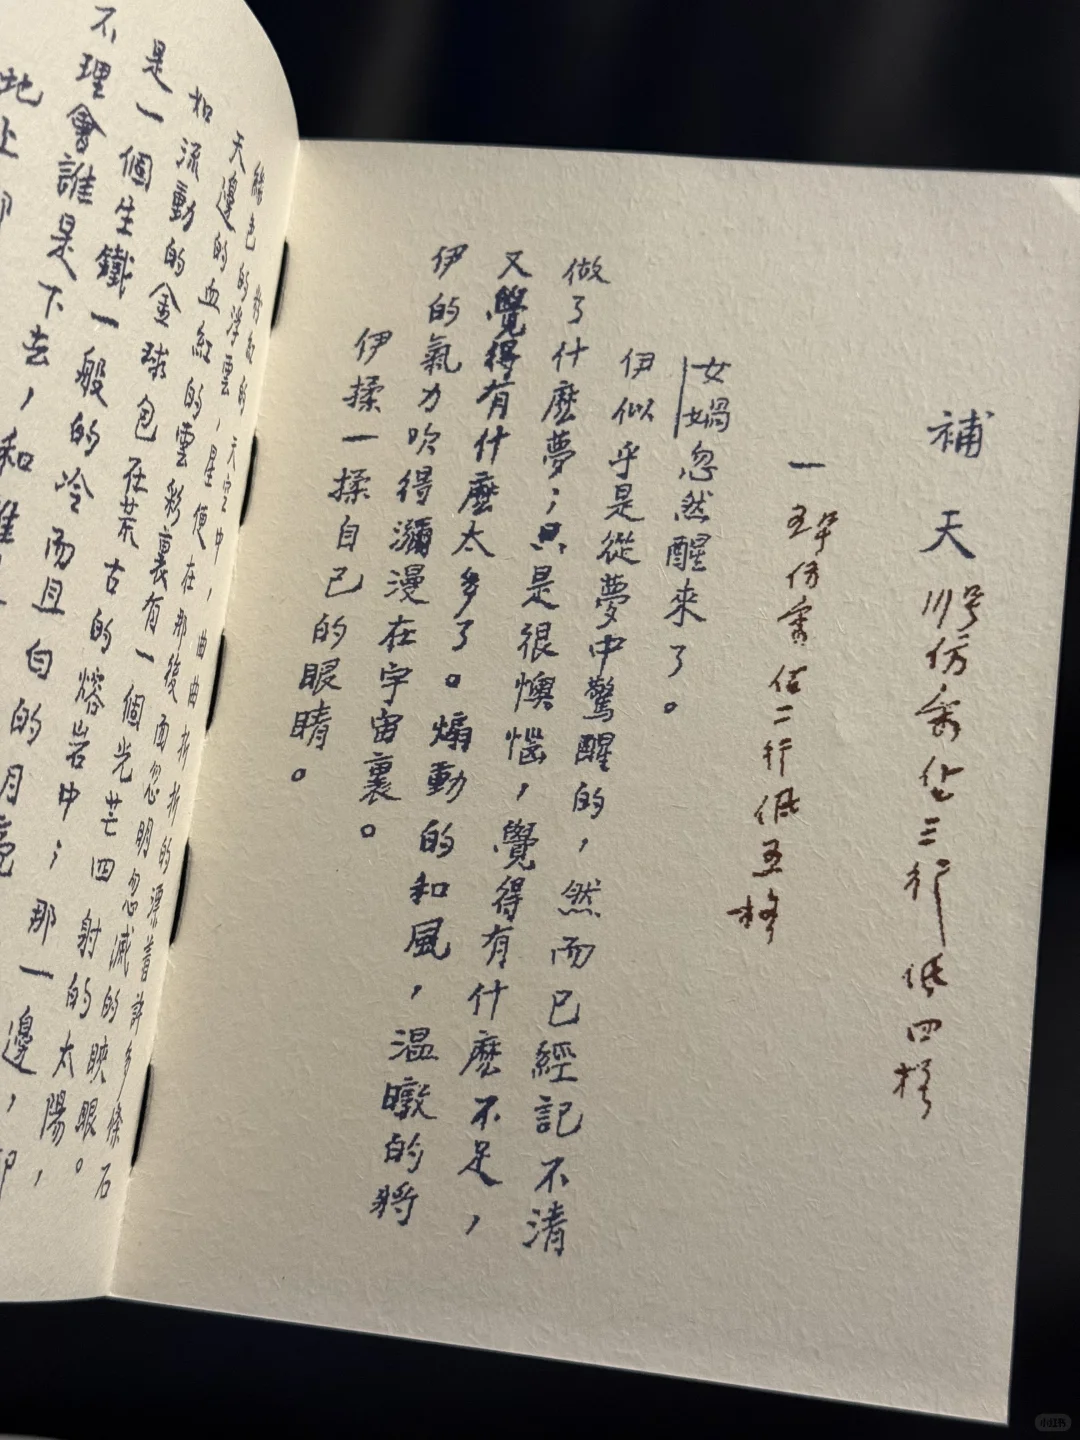 補天 川号仿宋占三行低四格
一 五号仿宋佔二行低五格
女媧忽然醒來了。
伊似乎是從夢中驚醒的，然而已經記不清
做了什麽夢；只是很懊惱，覺得有什麽不足，
又覺得有什麽太多了。煽動的和風，温暾的將
伊的氣力吹得瀰漫在宇宙裏。
伊揉一揉自己的眼睛。
色的浮雲，星便在那後面忽明忽滅的䀹眼。
天邊的血紅的雲彩裏有一個光芒四射的太陽，
如流動的金球包在荒古的熔岩中；那一邊，却
是一個生鐵一般的冷而且白的月亮
不理會誰是下去，和誰
地上即